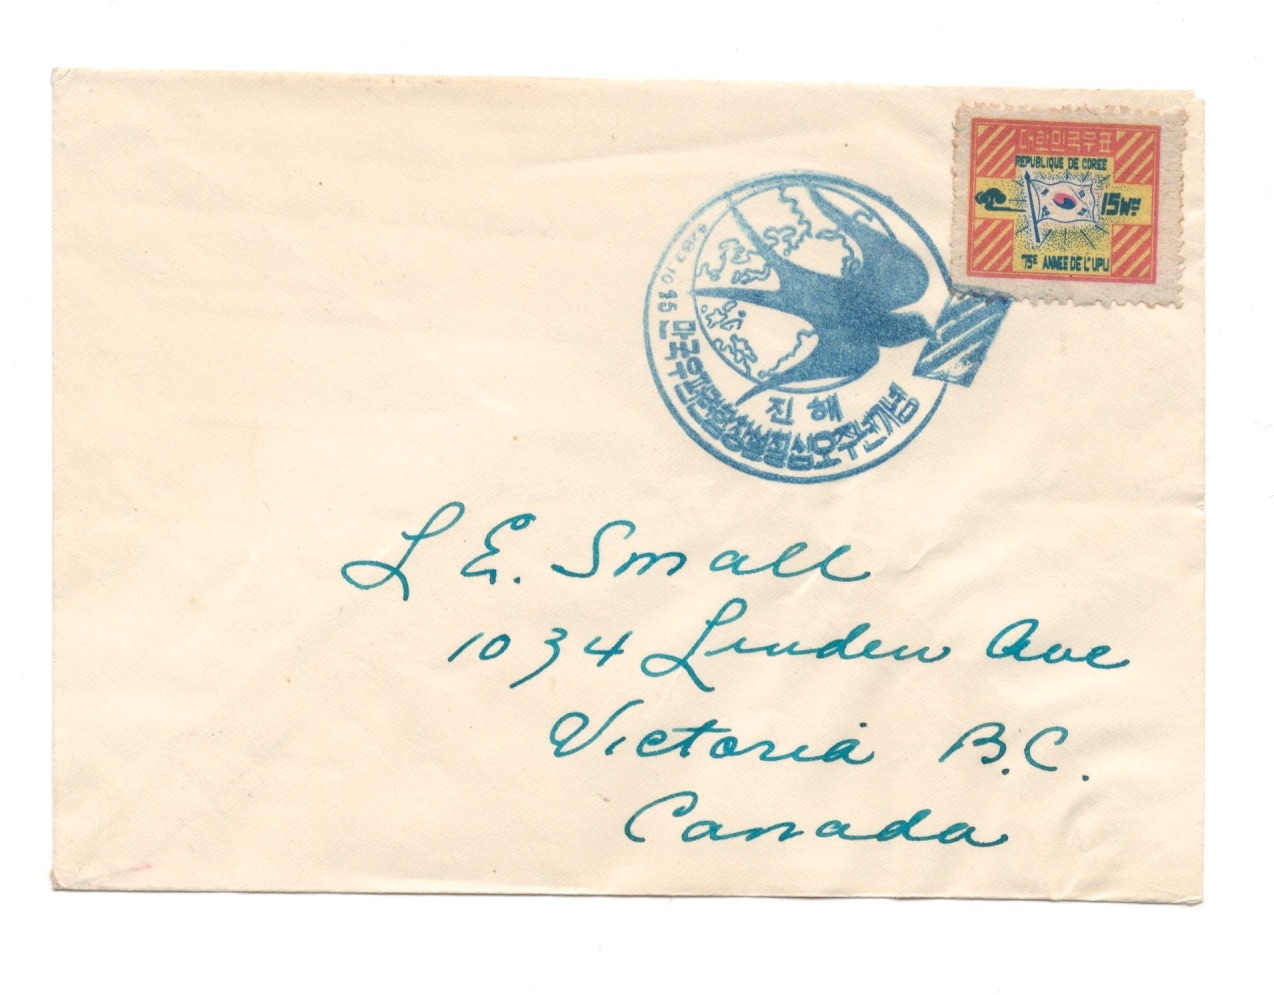 대한민국우표
REPUBLIQUE DE COREE
15
75E ANNEE DE L'UPU
만국우편연합창설칠십오주년기념
진해
L E. Small
1034 Linden Ave
Victoria B.C.
Canada